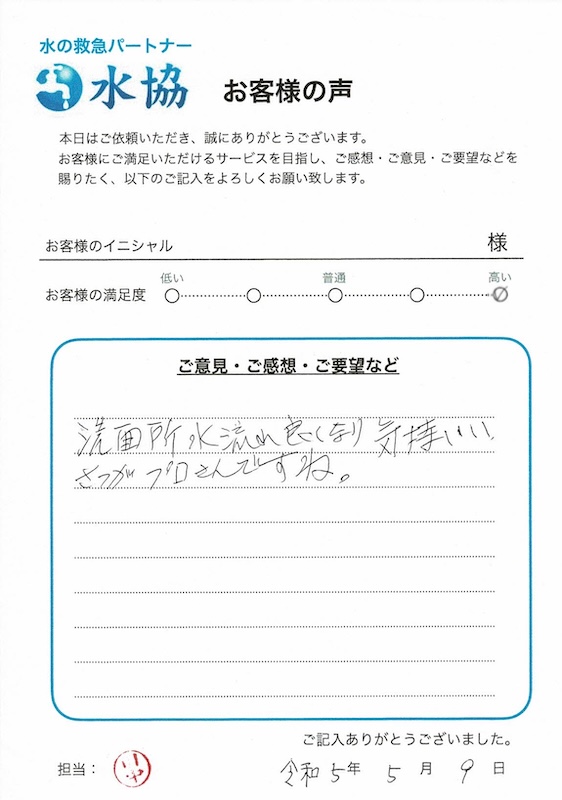 水の救急パートナー
水協 お客様の声
本日はご依頼いただき、誠にありがとうございます。
お客様にご満足いただけるサービスを目指し、ご感想・ご意見・ご要望などを
賜りたく、以下のご記入をよろしくお願い致します。
お客様のイニシャル 様
低い 普通 高い
お客様の満足度
ご意見・ご感想・ご要望など
洗面所水流れ良くなり気持いい、
さすがプロさんですね。
ご記入ありがとうございました。
担当: 令和5年 5月 9日